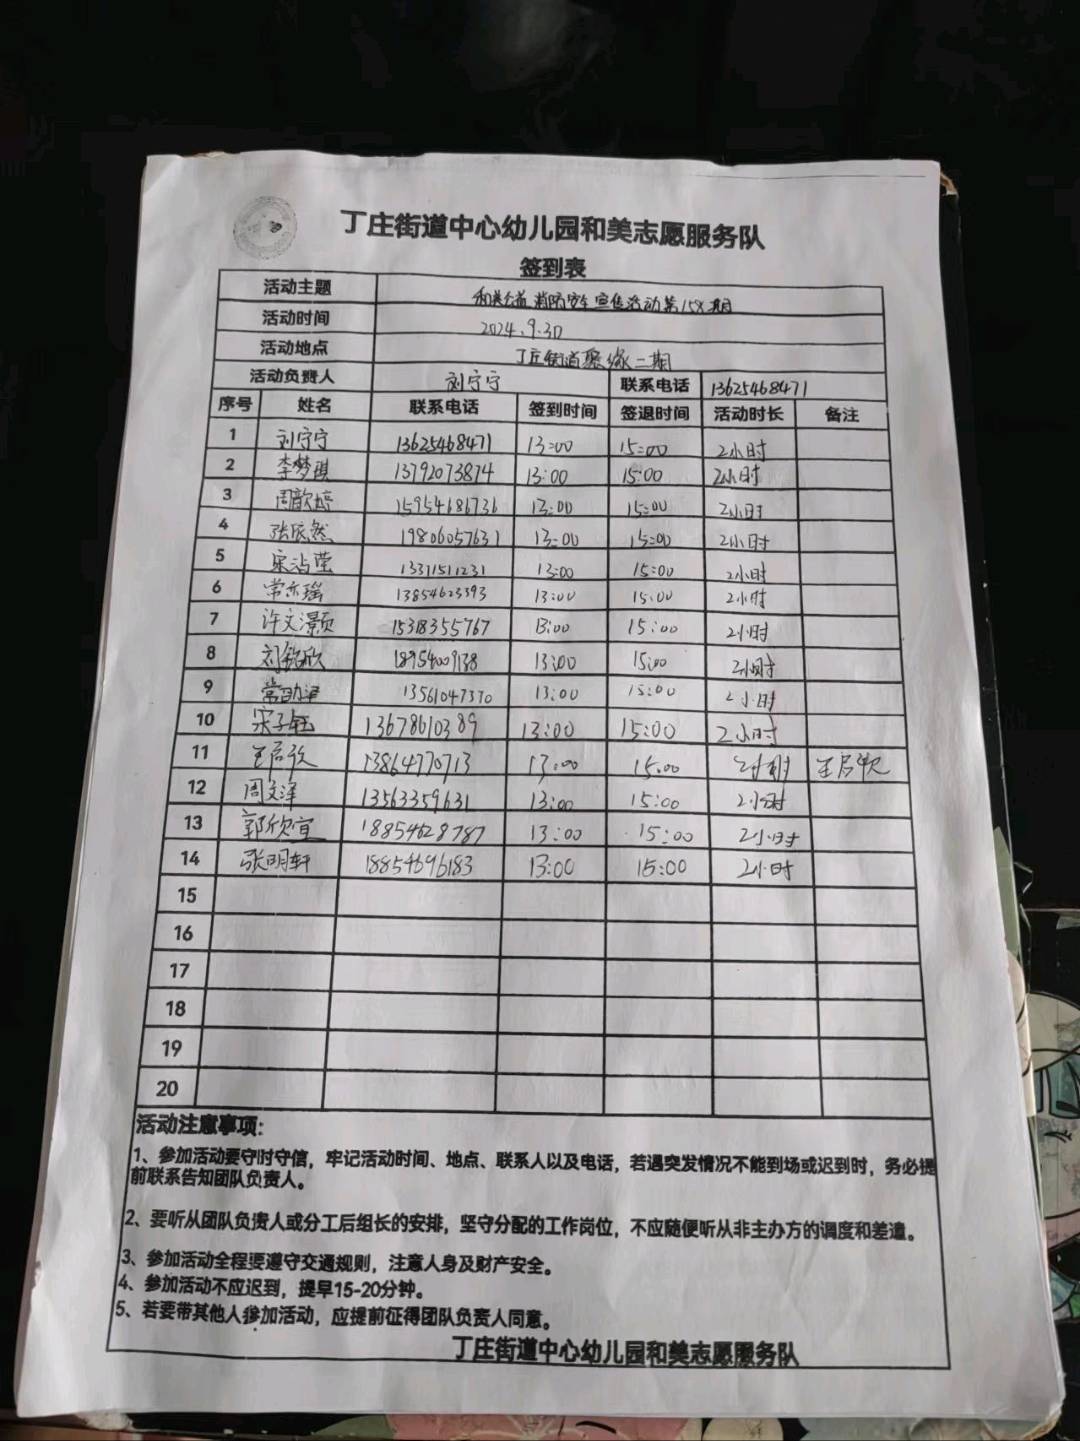 丁庄街道中心幼儿园和美志愿服务队
签到表
活动主题 和美公益 消防安全宣传活动第158期
活动时间 2024.9.30
活动地点 丁庄街道聚缘二期
活动负责人 刘宁宁 联系电话 13625468471
序号 姓名 联系电话 签到时间 签退时间 活动时长 备注
1 刘宁宁 13625468471 13:00 15:00 2小时
2 李梦琪 13792073874 13:00 15:00 2小时
3 周歆婷 15954686736 13:00 15:00 2小时
4 张依然 19806057631 13:00 15:00 2小时
5 宋沾莹 13311511231 13:00 15:00 2小时
6 常亦瑶 13854623393 13:00 15:00 2小时
7 许文灏 15318355767 13:00 15:00 2小时
8 18954009138 13:00 15:00 2小时
9 13561047370 13:00 15:00 2小时
10 宋子钰 13678610389 13:00 15:00 2小时
11 13864770713 13:00 15:00 2小时
12 周文泽 13563359631 13:00 15:00 2小时
13 郭欣宜 18854628787 13:00 15:00 2小时
14 张明轩 18854696183 13:00 15:00 2小时
15
16
17
18
19
20
活动注意事项:
1、参加活动要守时守信，牢记活动时间、地点、联系人以及电话，若遇突发情况不能到场或迟到时，务必提
前联系告知团队负责人。
2、要听从团队负责人或分工后组长的安排，坚守分配的工作岗位，不应随便听从非主办方的调度和差遣。
3、参加活动全程要遵守交通规则，注意人身及财产安全。
4、参加活动不应迟到，提早15-20分钟。
5、若要带其他人参加活动，应提前征得团队负责人同意。
丁庄街道中心幼儿园和美志愿服务队